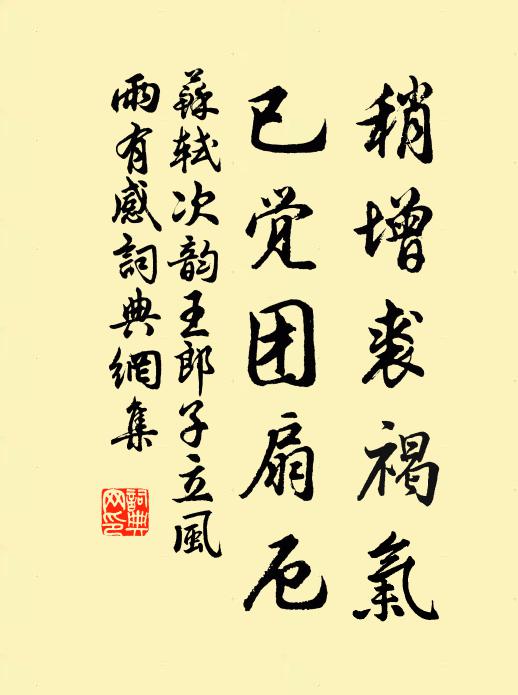 稍增裘褐氣
已觉团扇厄
蘇軾次韵王郎子立風
雨有感詞典網集
詞典
网印